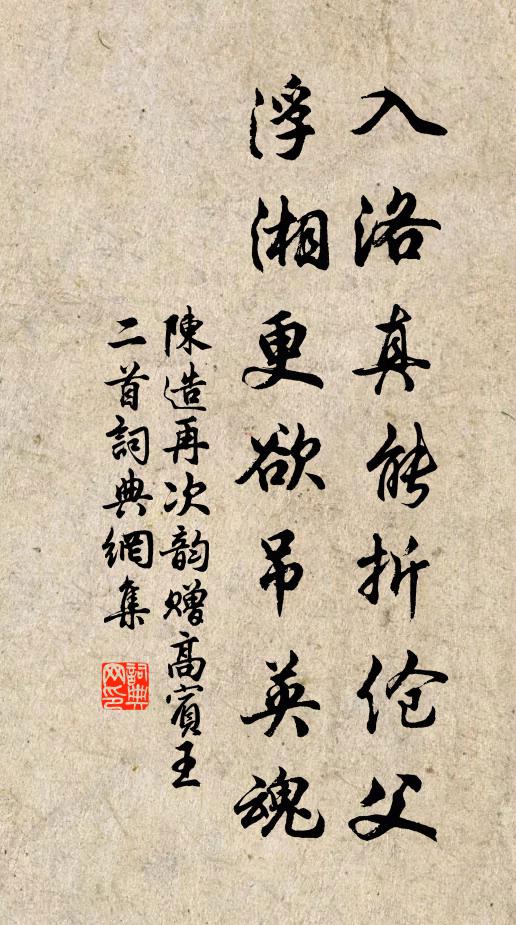 入洛真能折伧父
浮湘更欲吊英魂
陳造再次韵赠高賓王
二首詞典網集
詞典
网印